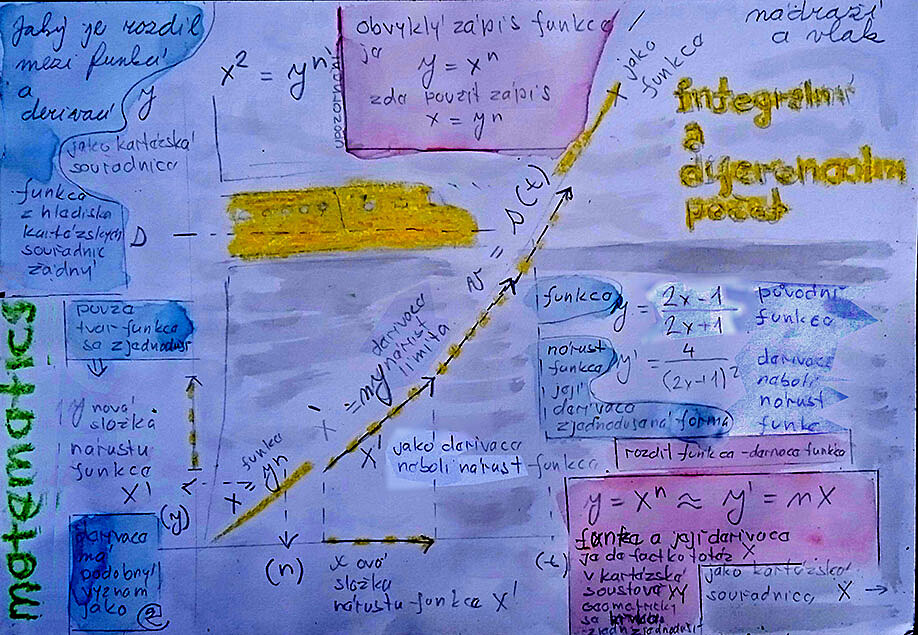 Jaký je rozdíl
mezi funkcí
a
derivací
y
jako kartézská
souřadnice
funkce
z hlediska
kartézských
souřadnic
žádný
x² = yⁿ
upozornění
obvyklý zápis funkce
je
y = xⁿ
zde použit zápis
x = yⁿ
jako
funkce
x
nádraží
a vlak
Integrální
a
diferenciální
počet
D
v = s(t)
matematics
pouze
tvar funkce
se zjednoduší
y nová
složka
nárustu
funkce
x'
(y)
funkce
x = yⁿ
derivace
nárust
limita
x' = ny
x'
jako derivace
neboli nárust funkce
(n)
(t)
x ová
složka
nárustu funkce x'
derivace
má
podobný
význam
jako
funkce
y = 2x-1
2x+1
původní
funkce
nárust
funkce
její
derivace
zjednodušená forma
y' = 4
(2x+1)²
derivace
neboli
nárust
funkce
rozdíl funkce - derivace funkce
y = xⁿ ≈ y' = nx
funkce a její derivace
je de facto totéž
v kartézské
soustavě xy
geometricky
se
jako kartézská
souřadnice x